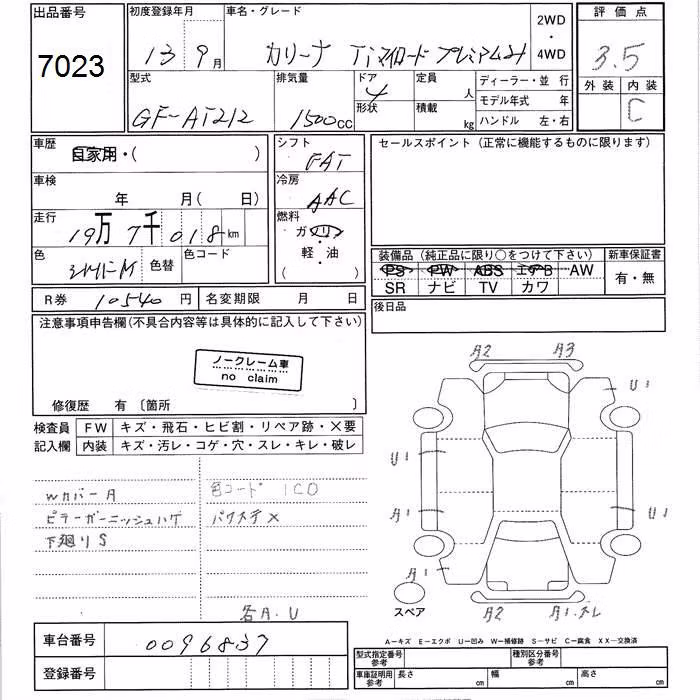 出品番号 初度登録年月 車名・グレード 2WD・4WD 評価点
7023 13 9月 カリーナ Tiマイロード プレミアム 3.5
型式 排気量 ドア 4 形状 定員 人 積載 kg ディーラー・並行 外装 内装
GF-AT212 1500cc モデル年式 年 C
ハンドル 左・右
車歴 自家用・( ) シフト FAT セールスポイント (正常に機能するものに限ります)
車検 年 月( 日) 冷房 AAC
走行 19万7千018km 燃料 ガソリン
色 シルバーM 色替 色コード 軽・油 ( )
装備品 (純正品に限り○をつけて下さい) 新車保証書
PS PW ABS エアB AW 有・無
SR ナビ TV カワ
R券 10540円 名変期限 月 日 後日品
注意事項申告欄(不具合内容等は具体的に記入して下さい)
ノークレーム車
no claim
修復歴 有 〔箇所 〕
検査員 FW キズ・飛石・ヒビ割・リペア跡・X要
記入欄 内装 キズ・汚レ・コゲ・穴・スレ・キレ・破レ
A2 A3
U1
U1
A1 U1
A1
スペア A2 A1・ズレ
Wカバー A 色コード 1C0
ピラーガーニッシュハゲ パワステ×
下廻りS
各A・U
A−キズ E−エクボ U−凹み W−補修跡 S−サビ C−腐食 XX−交換済
車台番号 0096837
登録番号
型式指定番号 参考 種別区分番号 参考
車庫証明用 参考 長さ cm 幅 cm 高さ cm